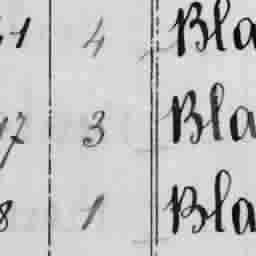 41 4 Bla
17 3 Bla
8 1 Bla